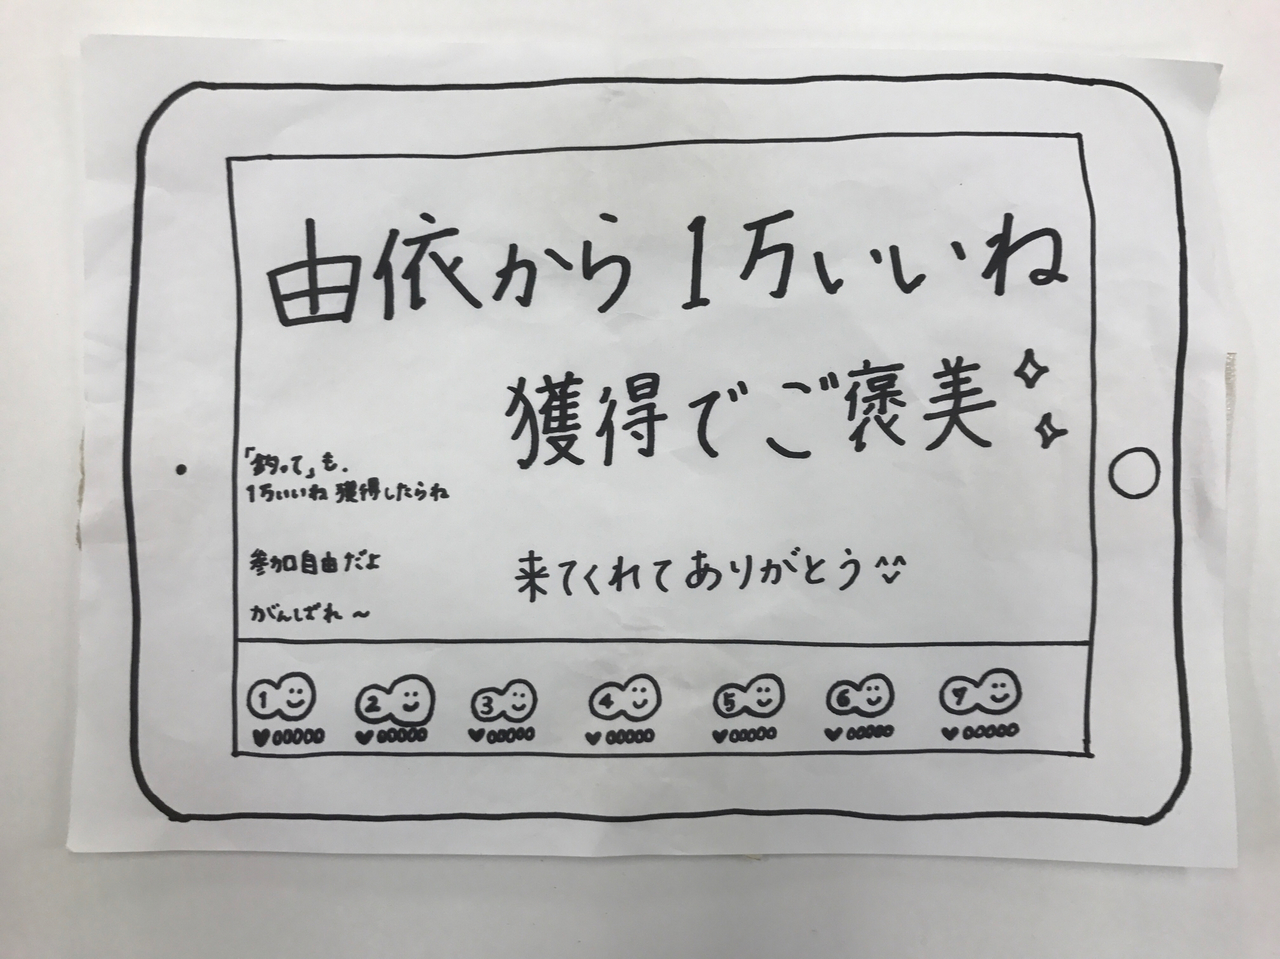 由依から1万いいね
獲得でご褒美
「釣って」も、
1万いいね獲得したらね
参加自由だよ
がんばれ〜
来てくれてありがとう^^
1 2 3 4 5 6 7
♥00000 ♥00000 ♥00000 ♥00000 ♥00000 ♥00000 ♥00000